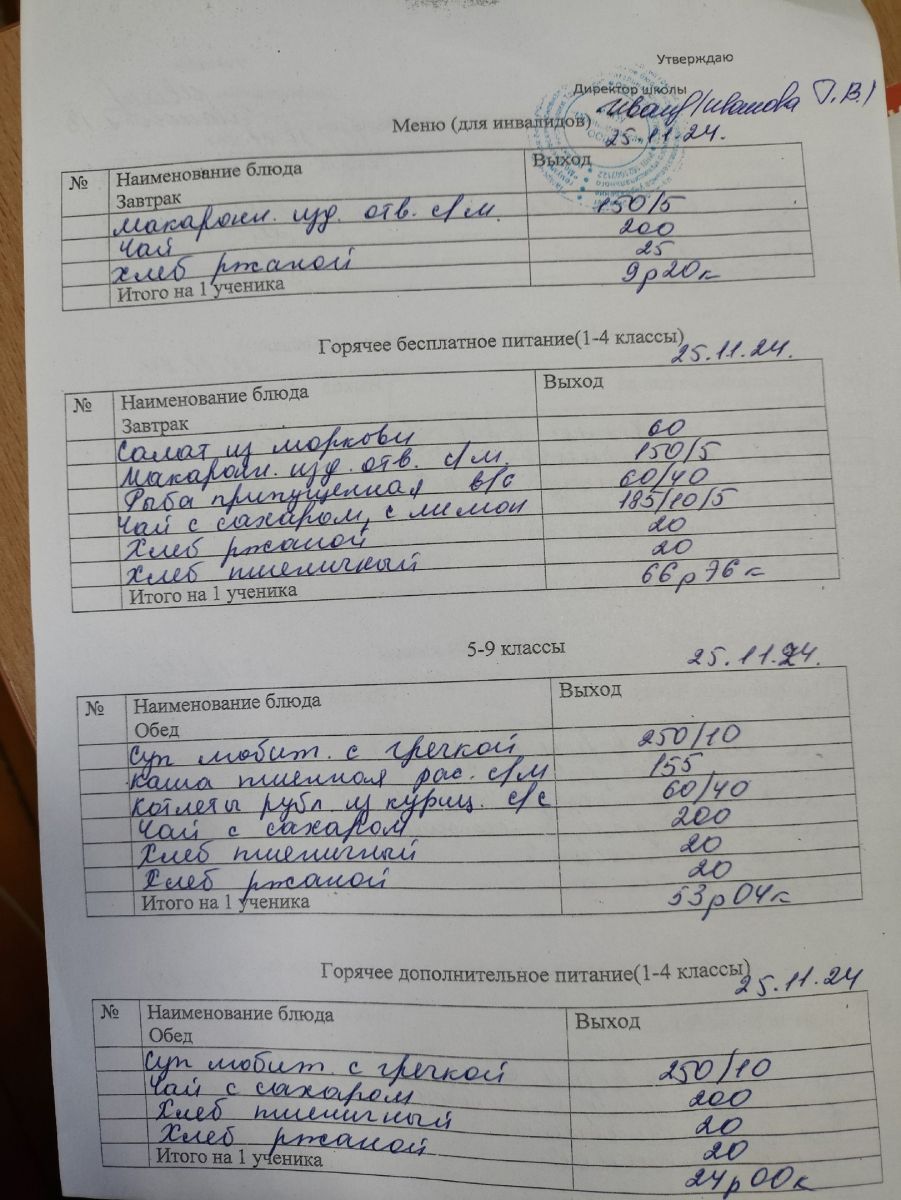 Утверждаю
Директор школы Иванова Т.В.)
Меню (для инвалидов) 25.11.24.
№ Наименование блюда Выход
Завтрак
Макарон. изд. отв. с/м. 150/5
Чай 200
Хлеб ржаной 25
Итого на 1 ученика 9р20к
Горячее бесплатное питание(1-4 классы) 25.11.24.
№ Наименование блюда Выход
Завтрак
Салат из моркови 60
Макарон. изд. отв. с/м. 150/5
Рыба припущенная в/с 60/40
Чай с сахаром, с лимон 185/10/5
Хлеб ржаной 20
Хлеб пшеничный 20
Итого на 1 ученика 66р76к
5-9 классы 25.11.24.
№ Наименование блюда Выход
Обед
Суп любит. с гречкой 250/10
Каша пшенная рас. с/м 155
Котлеты рубл из куриц. с/с 60/40
Чай с сахаром 200
Хлеб пшеничный 20
Хлеб ржаной 20
Итого на 1 ученика 53р04к
Горячее дополнительное питание(1-4 классы) 25.11.24
№ Наименование блюда Выход
Обед
Суп любит. с гречкой 250/10
Чай с сахаром 200
Хлеб пшеничный 20
Хлеб ржаной 20
Итого на 1 ученика 24р00к